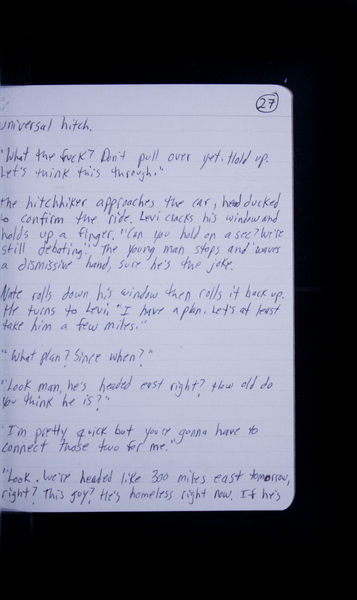 27
universal hitch.
"What the fuck? Don't pull over yet. Hold up.
Let's think this through."
the hitchhiker approaches the car, head ducked
to confirm the ride. Levi cracks his window and
holds up a finger. "Can you hold on a sec? We're
still debating." The young man stops and waves
a dismissive hand, sure he's the joke.
Nate rolls down his window then rolls it back up.
He turns to Levi, "I have a plan. Let's at least
take him a few miles."
"What plan? Since when?"
"Look man, he's headed east right? How old do
you think he is?"
"I'm pretty quick but you're gonna have to
connect those two for me."
"Look. We're headed like 300 miles east tomorrow,
right? This guy? He's homeless right now. If he's